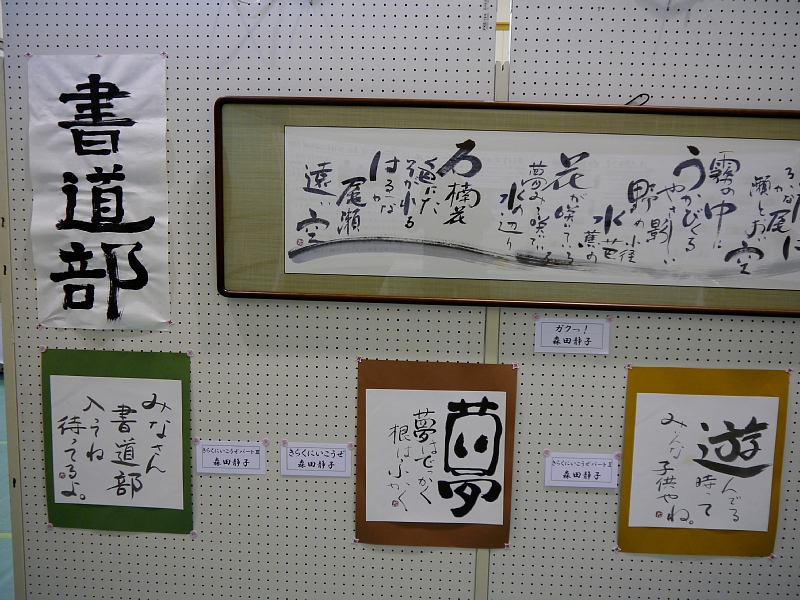 書道部
霧の中に
うかびくる
やさしい
影
野の小径
水芭蕉の
花が咲いている
夢みて咲いている
水の辺り
石楠花
遠い空
はるかな
尾瀬
遠い空
ガクっ！
森田静子
みなさん
書道部
入ってね
待ってるよ。
きらくにいこうぜパートⅢ
森田静子
きらくにいこうぜ
森田静子
夢
夢はでっかく
根はふかく
きらくにいこうぜパートⅡ
森田静子
遊んでる
時って
みんな
子供やね。